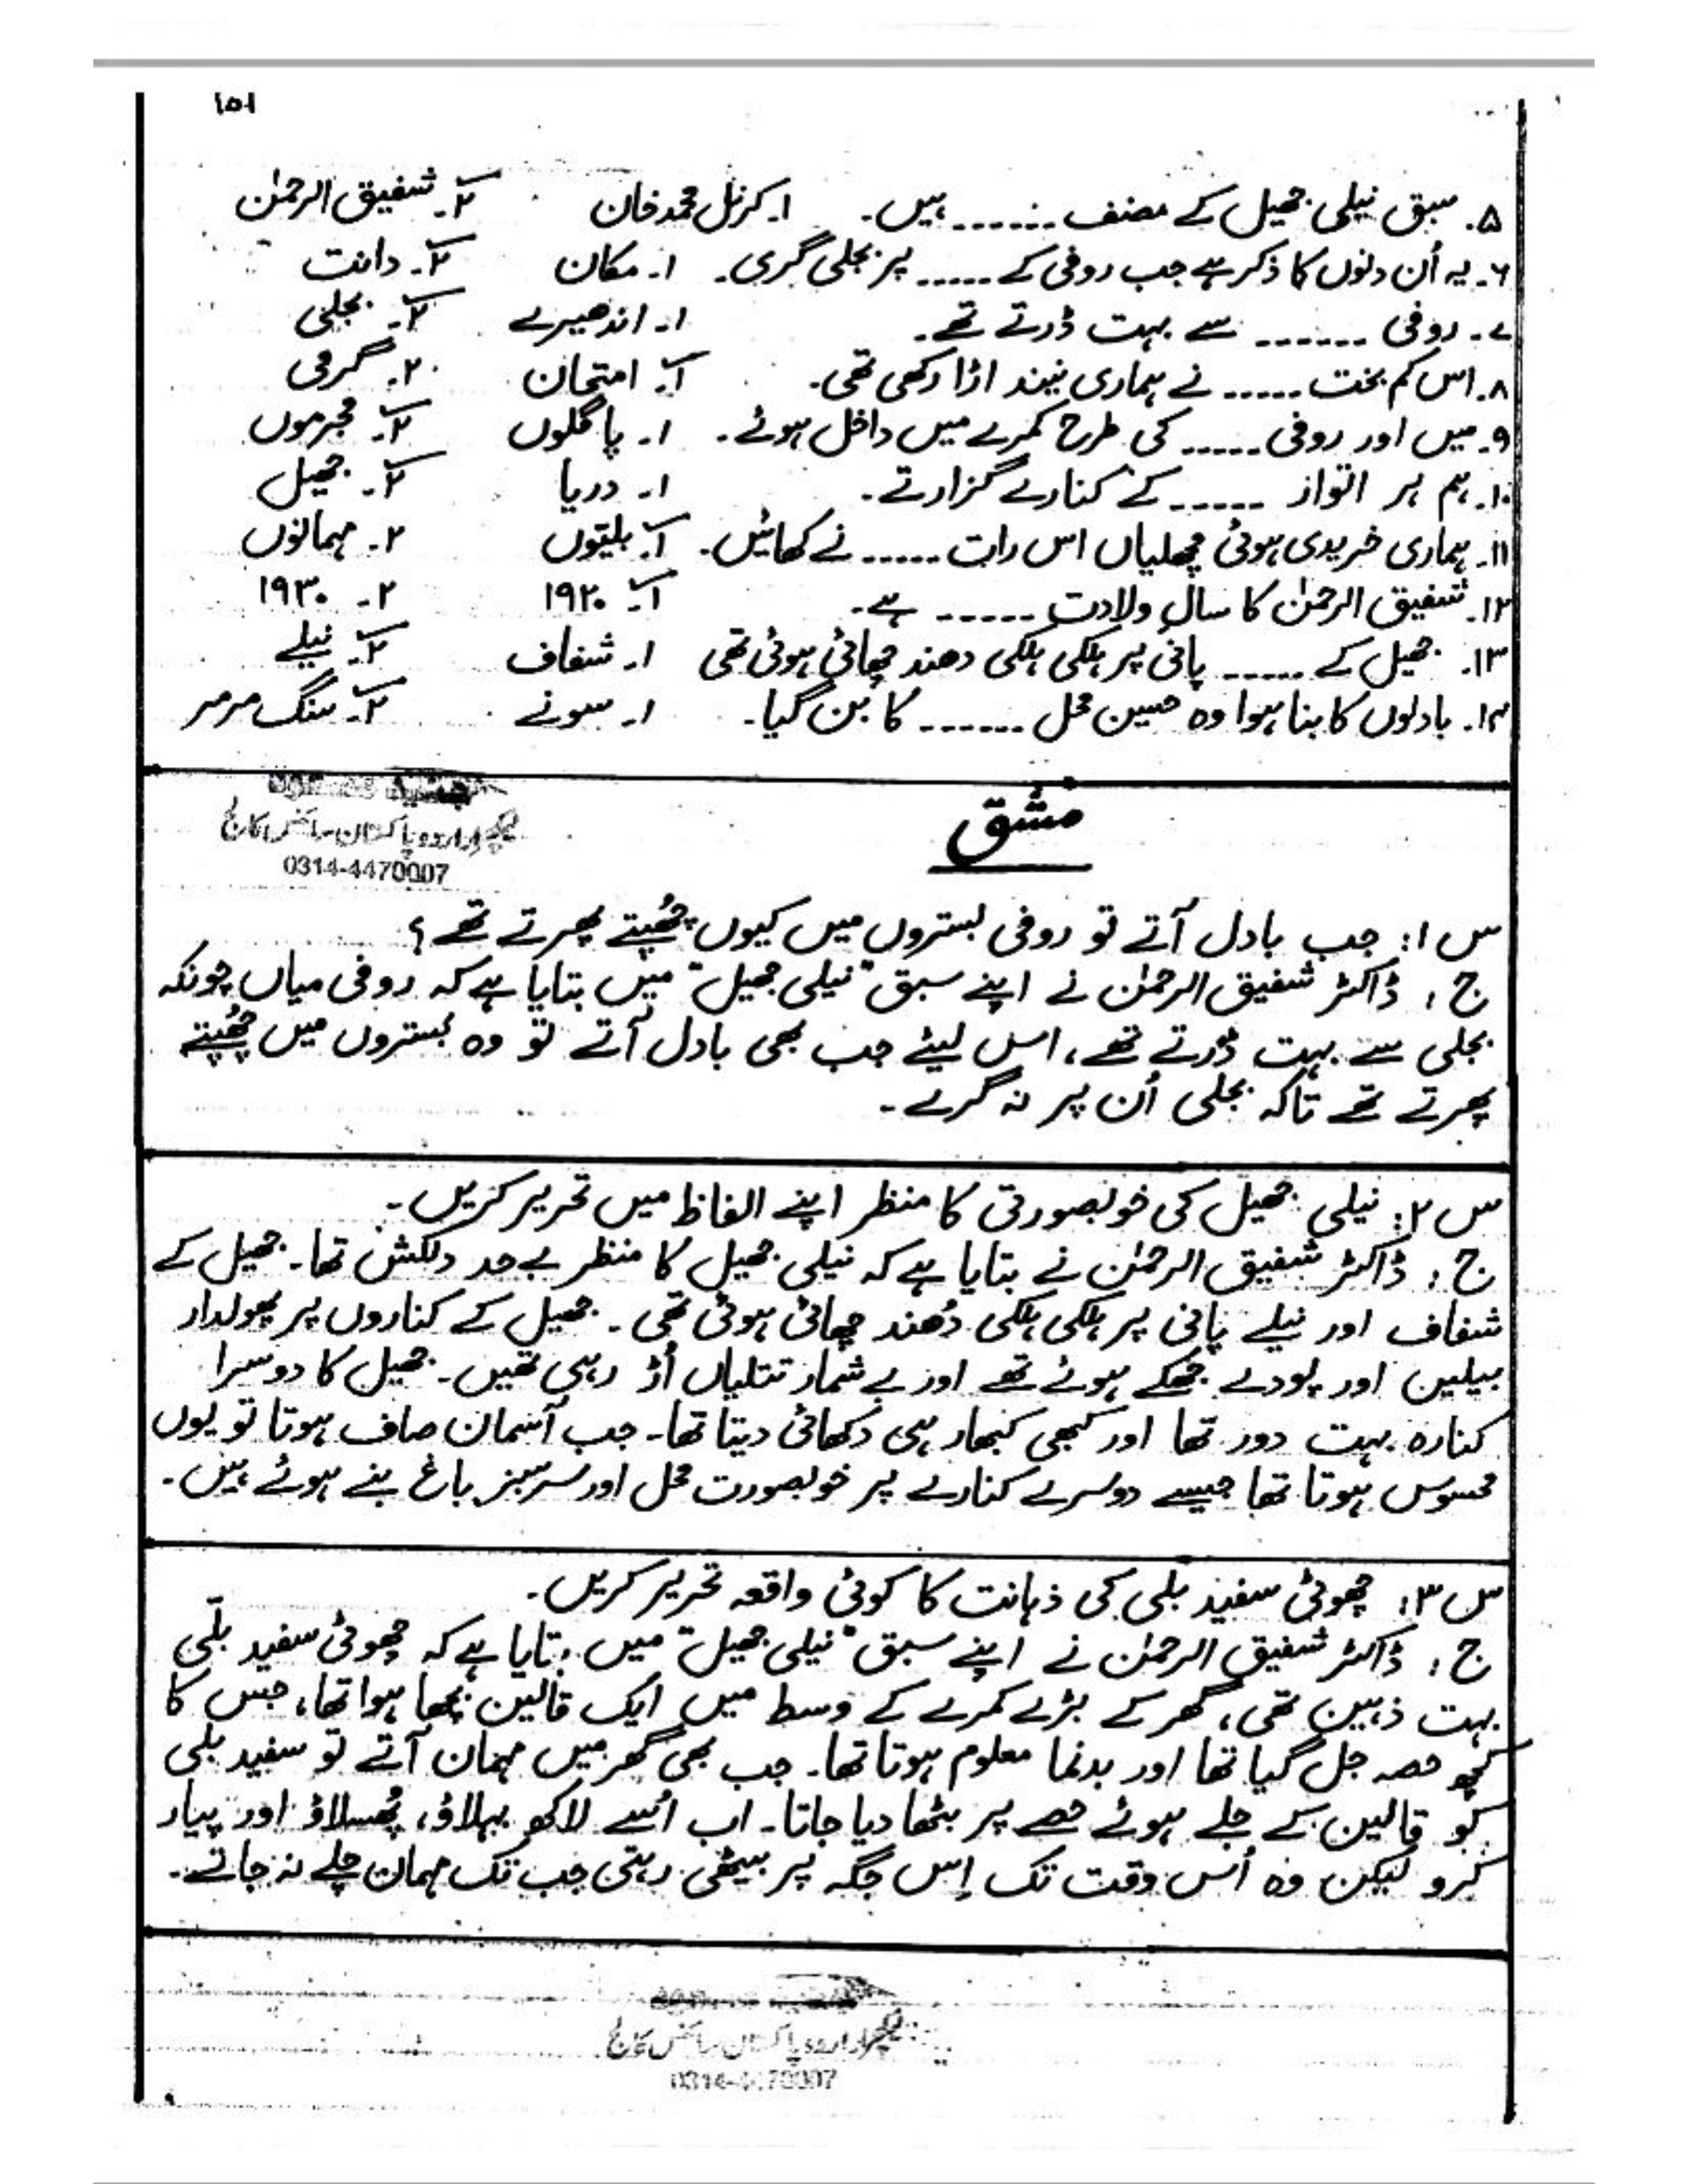 ۱۵۱
۵۔ سبق نیلی جھیل کے مصنف ------ ہیں۔ ۱۔ کرنل محمد خان ۲۔ شفیق الرحمٰن
۶۔ یہ اُن دنوں کا ذکر ہے جب روفی کے ----- پر بجلی گری۔ ۱۔ مکان ۲۔ دانت
۷۔ روفی ------ سے بہت ڈرتے تھے۔ ۱۔ اندھیرے ۲۔ بجلی
۸۔ اس کم بخت ----- نے ہماری نیند اڑا رکھی تھی۔ ۱۔ امتحان ۲۔ گرمی
۹۔ میں اور روفی ----- کی طرح کمرے میں داخل ہوئے۔ ۱۔ پاگلوں ۲۔ مجرموں
۱۰۔ ہم ہر اتوار ----- کے کنارے گزارتے۔ ۱۔ دریا ۲۔ جھیل
۱۱۔ ہماری خریدی ہوئی مچھلیاں اس رات ----- نے کھائیں۔ ۱۔ بلیوں ۲۔ مہمانوں
۱۲۔ شفیق الرحمٰن کا سالِ ولادت ----- ہے۔ ۱۔ ۱۹۲۰ ۲۔ ۱۹۳۰
۱۳۔ جھیل کے ----- پانی پر ہلکی ہلکی دھند چھائی ہوئی تھی ۱۔ شفاف ۲۔ نیلے
۱۴۔ بادلوں کا بنا ہوا وہ حسین محل ------ کا بن گیا۔ ۱۔ سونے ۲۔ سنگ مرمر
مشق
لیکچرار اردو پاکستان سائنس کالج
0314-4470007
س ۱: جب بادل آتے تو روفی بستروں میں کیوں چُھپتے پھرتے تھے؟
ج: ڈاکٹر شفیق الرحمٰن نے اپنے سبق "نیلی جھیل" میں بتایا ہے کہ روفی میاں چونکہ
بجلی سے بہت ڈرتے تھے، اس لیئے جب بھی بادل آتے تو وہ بستروں میں چُھپتے
پھرتے تھے تاکہ بجلی اُن پر نہ گرے۔
س ۲: نیلی جھیل کی خوبصورتی کا منظر اپنے الفاظ میں تحریر کریں۔
ج: ڈاکٹر شفیق الرحمٰن نے بتایا ہے کہ نیلی جھیل کا منظر بے حد دلکش تھا۔ جھیل کے
شفاف اور نیلے پانی پر ہلکی ہلکی دُھند چھائی ہوئی تھی۔ جھیل کے کناروں پر پھولدار
بیلیں اور پودے جھکے ہوئے تھے اور بے شمار تتلیاں اُڑ رہی تھیں۔ جھیل کا دوسرا
کنارہ بہت دور تھا اور کبھی کبھار ہی دکھائی دیتا تھا۔ جب آسمان صاف ہوتا تو یوں
محسوس ہوتا تھا جیسے دوسرے کنارے پر خوبصورت محل اور سرسبز باغ بنے ہوئے ہیں۔
س ۳: چھوٹی سفید بلی کی ذہانت کا کوئی واقعہ تحریر کریں۔
ج: ڈاکٹر شفیق الرحمٰن نے اپنے سبق "نیلی جھیل" میں بتایا ہے کہ چھوٹی سفید بلّی
بہت ذہین تھی، گھر کے بڑے کمرے کے وسط میں ایک قالین بچھا ہوا تھا، جس کا
کچھ حصہ جل گیا تھا اور بدنما معلوم ہوتا تھا۔ جب بھی گھر میں مہمان آتے تو سفید بلی
کو قالین کے جلے ہوئے حصے پر بٹھا دیا جاتا۔ اب اُسے لاکھ بہلاؤ، پُھسلاؤ اور پیار
کرو لیکن وہ اُس وقت تک اِس جگہ پر بیٹھی رہتی جب تک مہمان چلے نہ جاتے۔
لیکچرار اردو پاکستان سائنس کالج